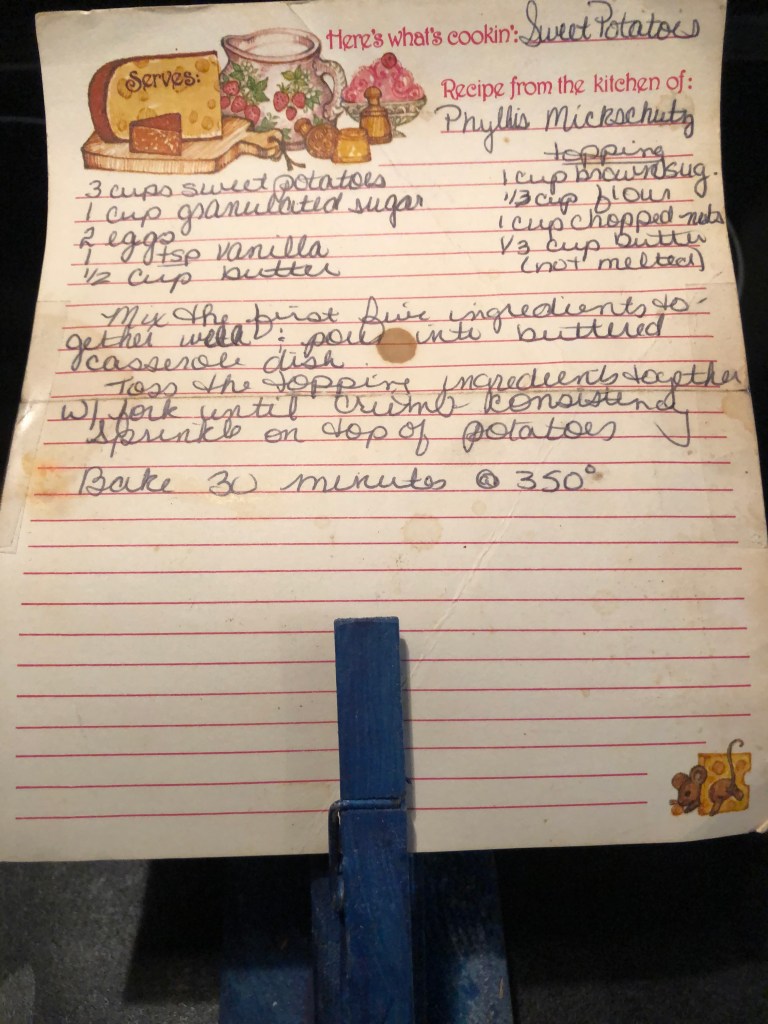 Here's what's cookin': Sweet Potatoes
Serves:
Recipe from the kitchen of:
Phyllis Mickschutz
3 cups sweet potatoes
1 cup granulated sugar
2 eggs
1 tsp vanilla
1/2 cup butter
topping
1 cup brown sug.
1/3 cup flour
1 cup chopped nuts
1/3 cup butter
(not melted)
Mix the first five ingredients to-
gether well: pour into buttered
casserole dish.
Toss the topping ingredients together
w/ fork until crumb konsistency
Sprinkle on top of potatoes
Bake 30 minutes @ 350°